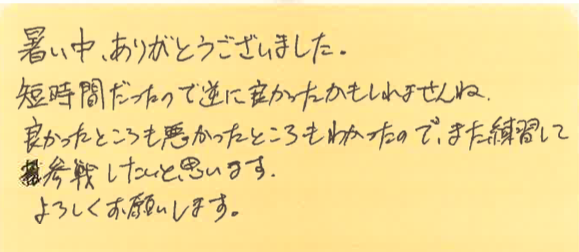 暑い中、ありがとうございました。
短時間だったので逆に良かったかもしれませんね.
良かったところも悪かったところもわかったので、また練習して
参戦したいと思います.
よろしくお願いします。